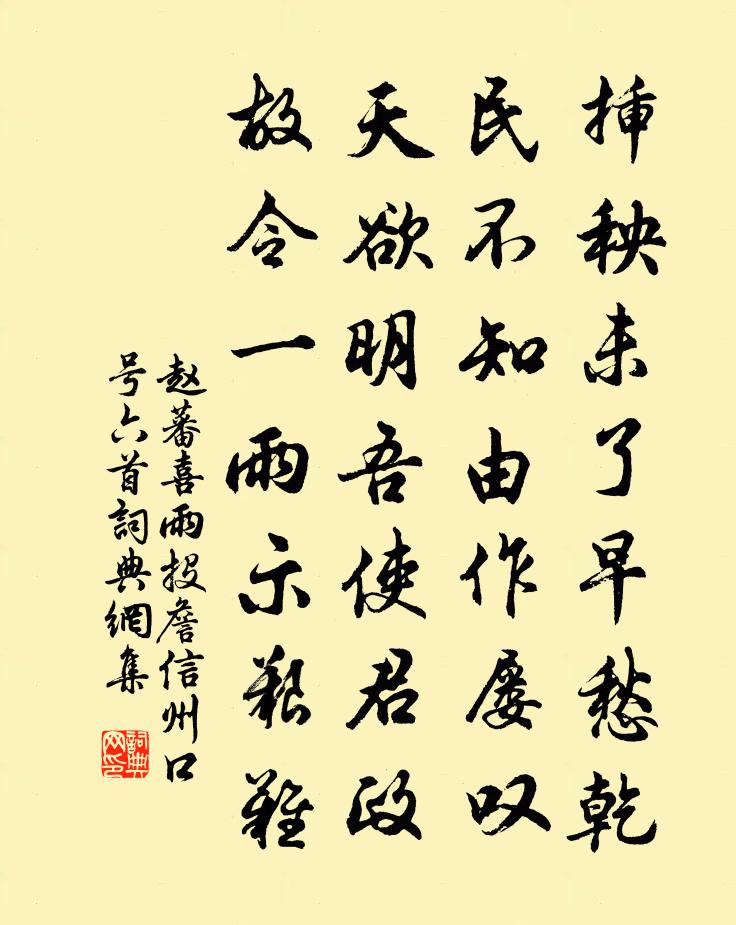 挿秧未了早愁乾
民不知由作屡叹
天欲明吾使君政
故令一雨示艱難
赵蕃喜雨投詹信州口
号六首詞典網集
詞典
网印